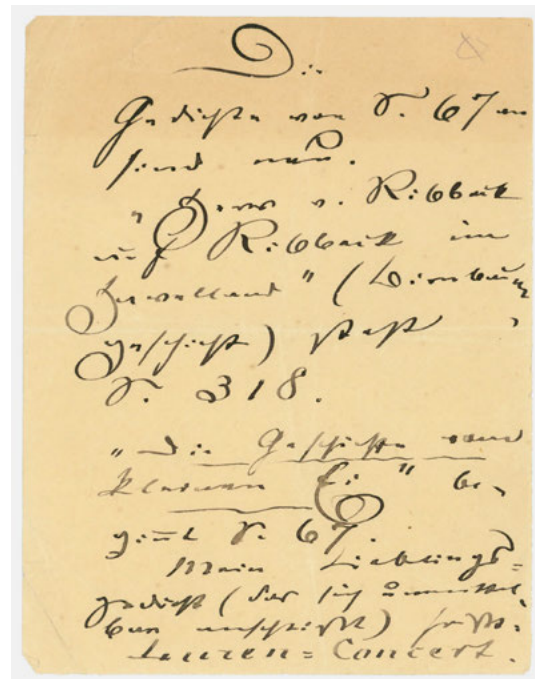 Die
Gedichte von S. 67 an
sind neu.
"Herr v. Ribbeck
auf Ribbeck im
Havelland" (Birnbaum
geschichte) steht
S. 318.
"Die Geschichte vom
kleinen Ei" be-
ginnt S. 67.
Mein Lieblings=
gedicht (das sich unmittel
bar anschließt) heißt:
Lauren=Concert.